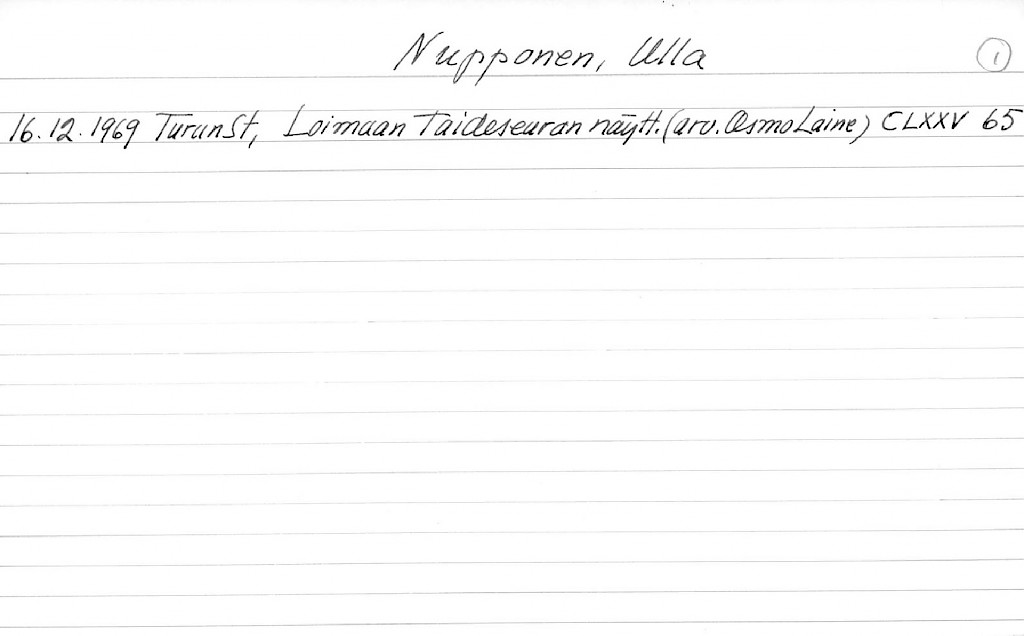 Nupponen, Ulla 1
16.12.1969 TurunSt, Loimaan Taideseuran näytt. (arv. Osmo Laine) CLXXV 65